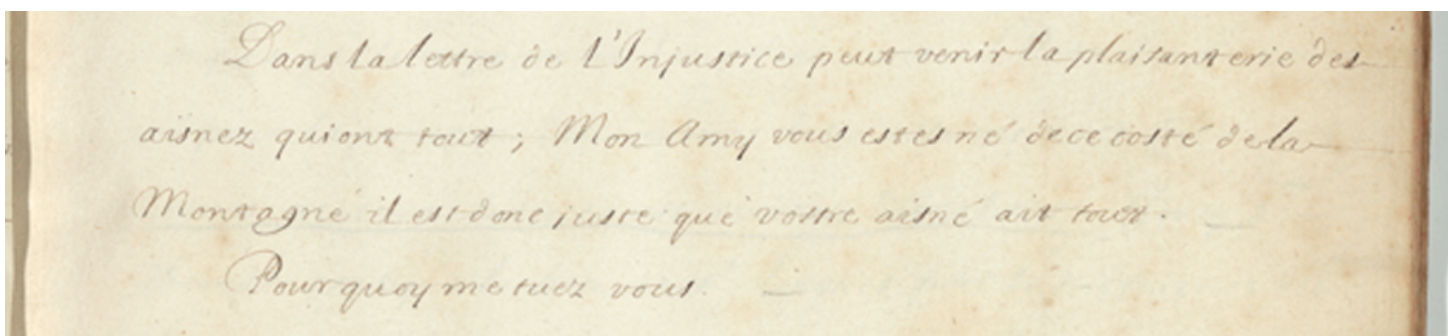 Dans la lettre de l'Injustice peut venir la plaisanterie des
aisnez qui ont tout ; Mon Amy vous estes né de ce costé de la
Montagne il est donc juste que vostre aisné ait tout.
Pourquoy me tuez vous.